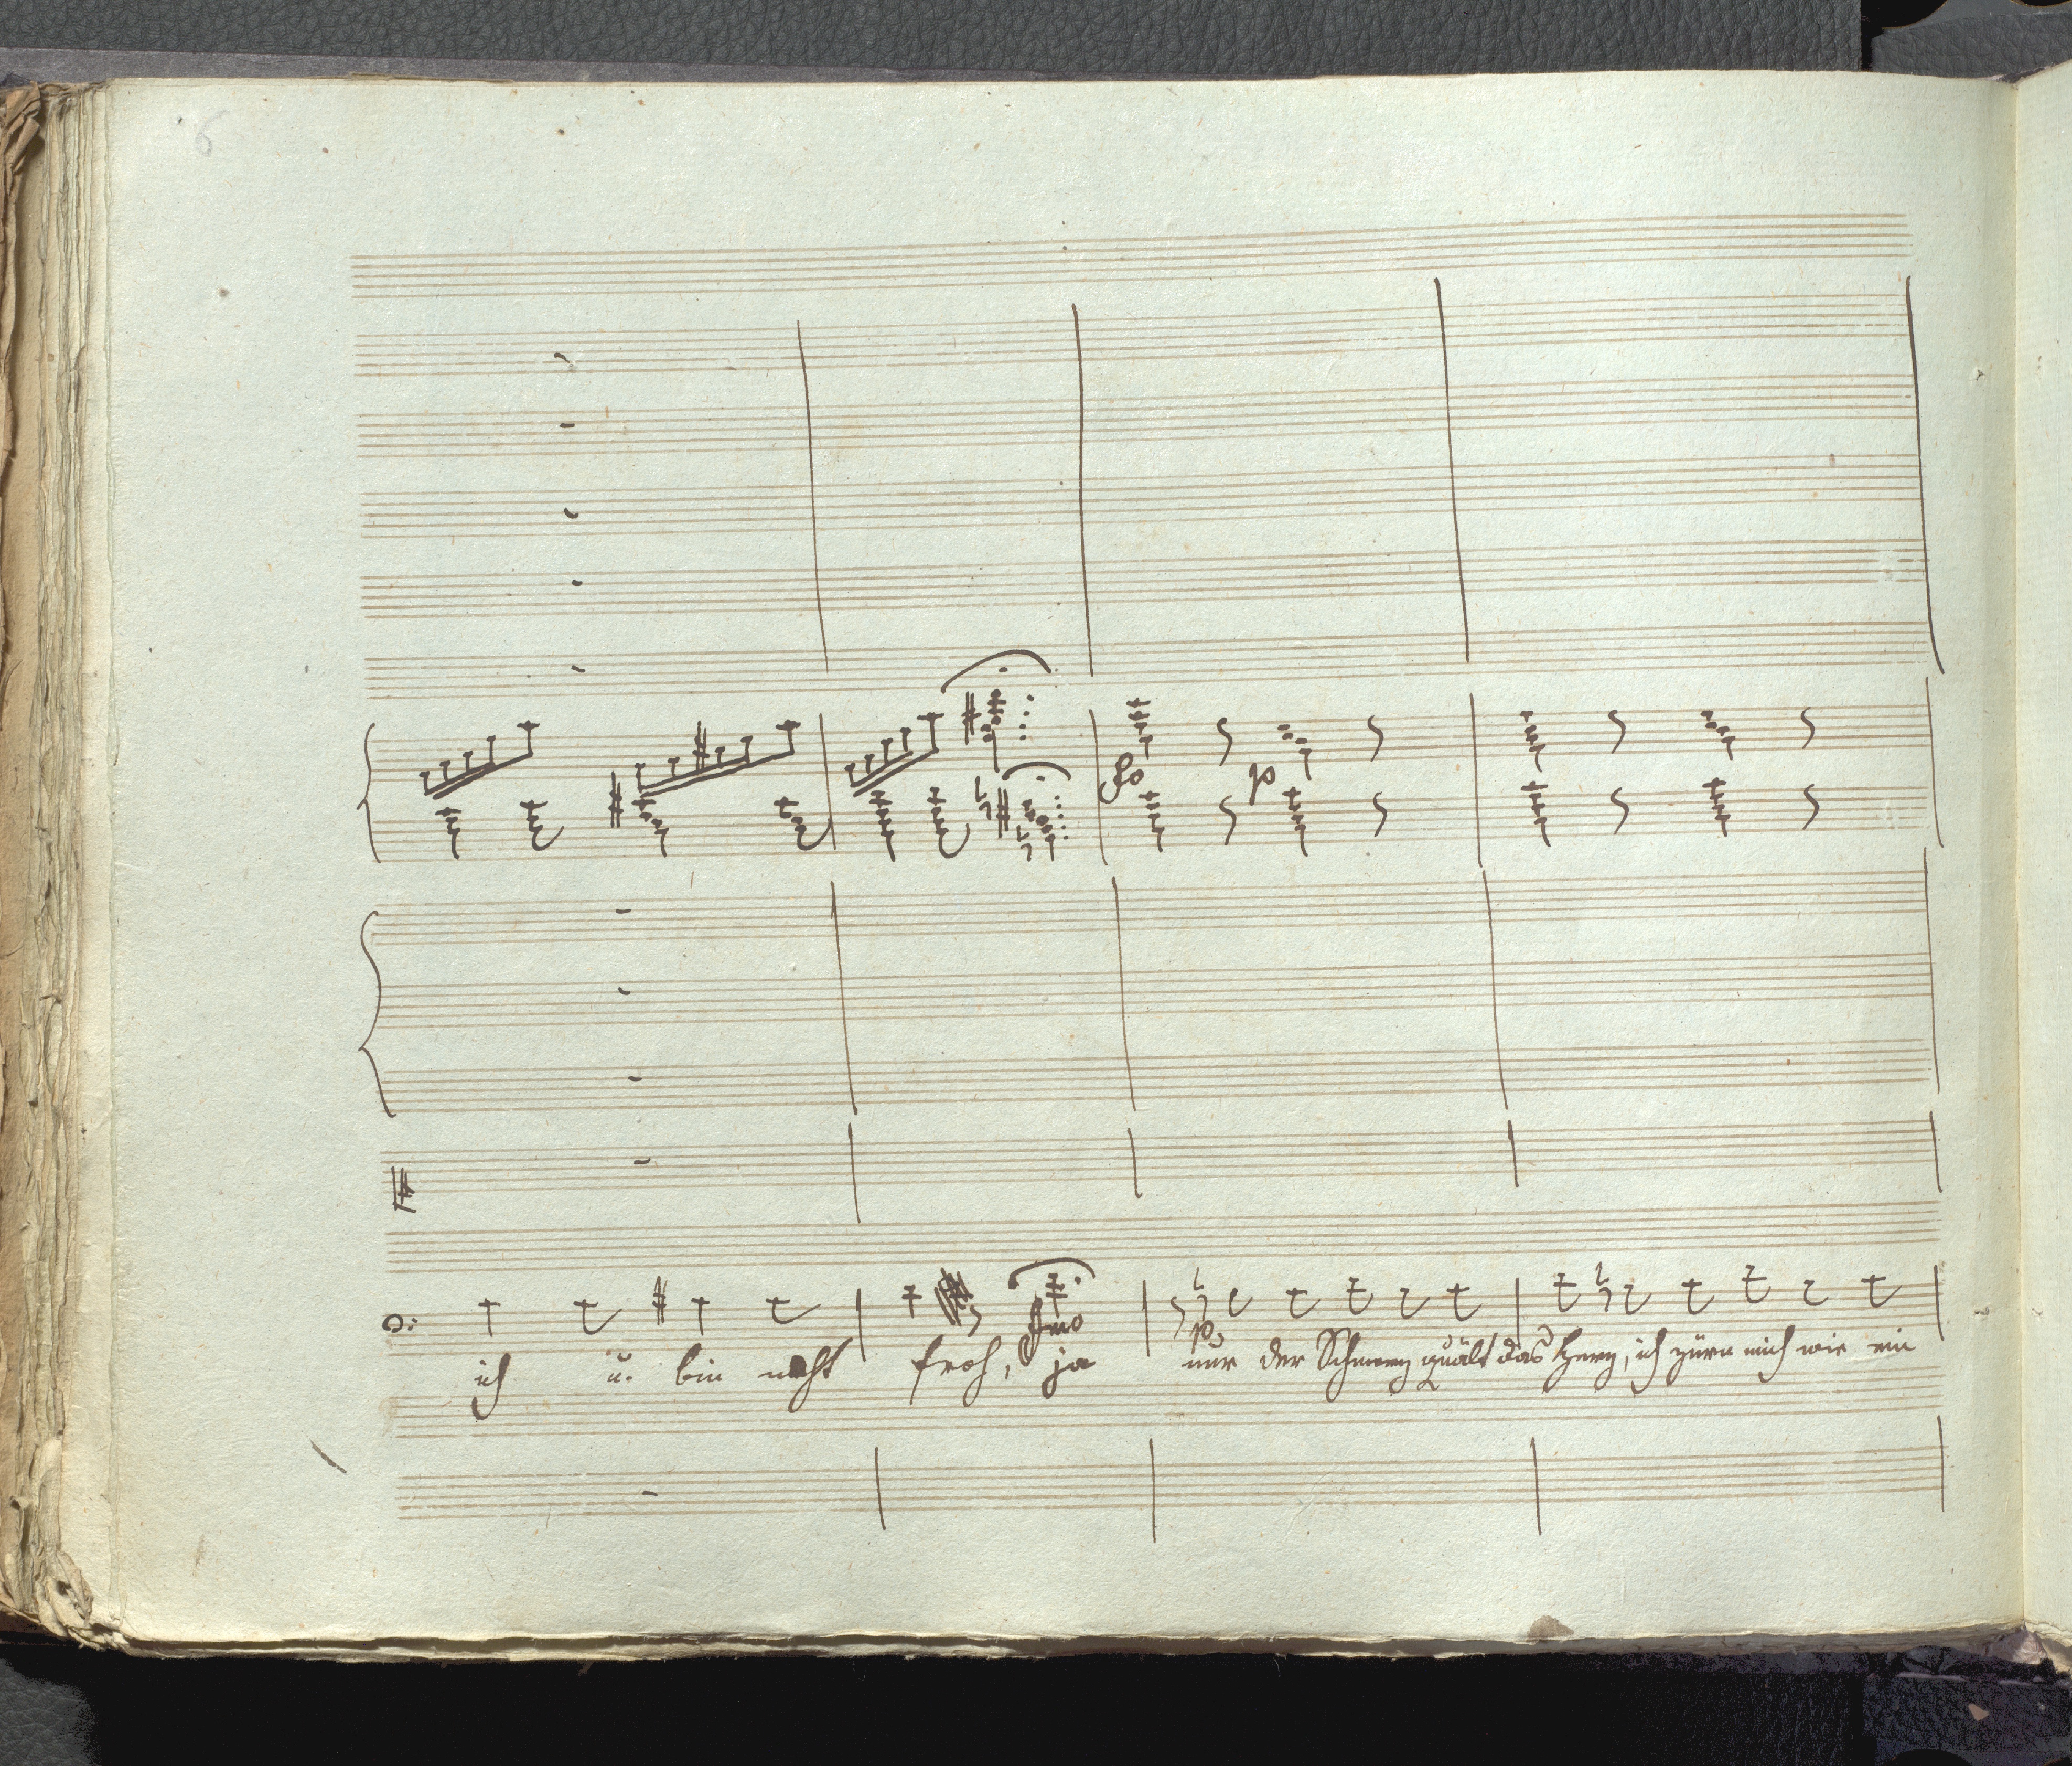 6
fo p
fmo
po
ich u. bin nicht froh, ja nur der Schmerz quält das Herz, ich zürn mich wie ein